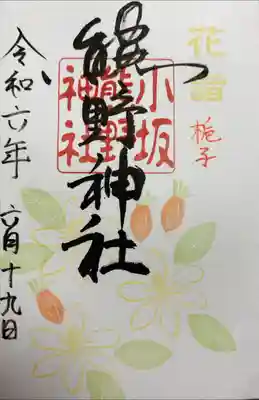 花
梔子
小坂
熊野
神社
熊野神社
令和六年 六月十九日